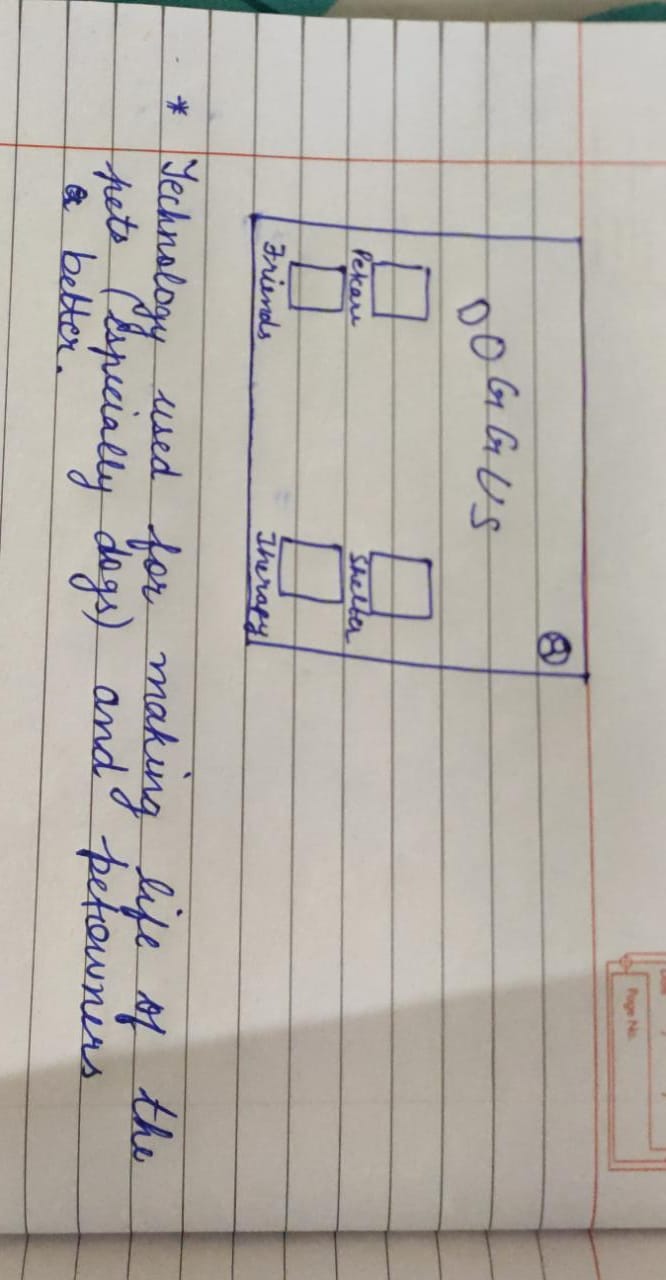 Page No.
DOGGUS
Shelter
Friends Therapy
* Technology used for making life of the
pets (Especially dogs) and petowners
a better.